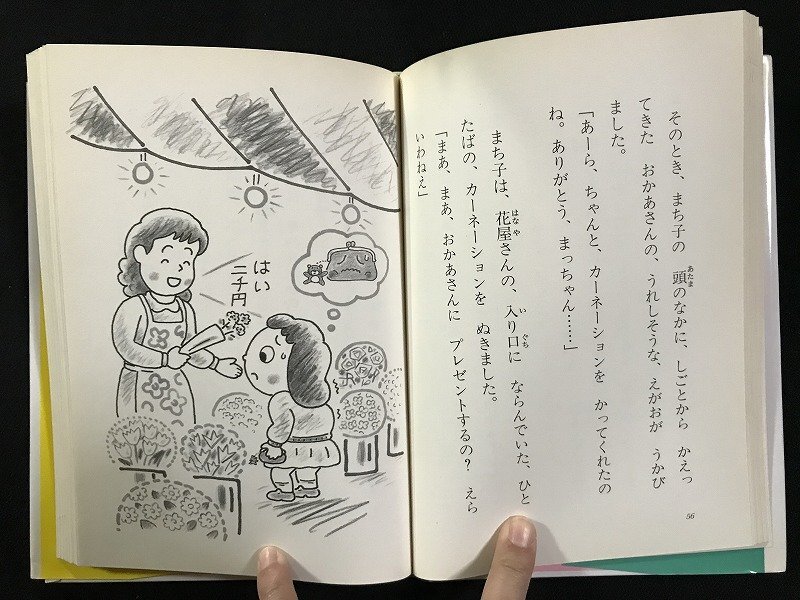 そのとき、まち子の　頭のなかに、しごとから　かえっ
てきた　おかあさんの、うれしそうな、えがおが　うかび
ました。
「あーら、ちゃんと、カーネーションを　かってくれたの
ね。ありがとう、まっちゃん……」
まち子は、花屋さんの、入り口に　ならんでいた、ひと
たばの、カーネーションを　ぬきました。
「まあ、まあ、おかあさんに　プレゼントするの？　えら
いわねえ」
56
はい
二千円